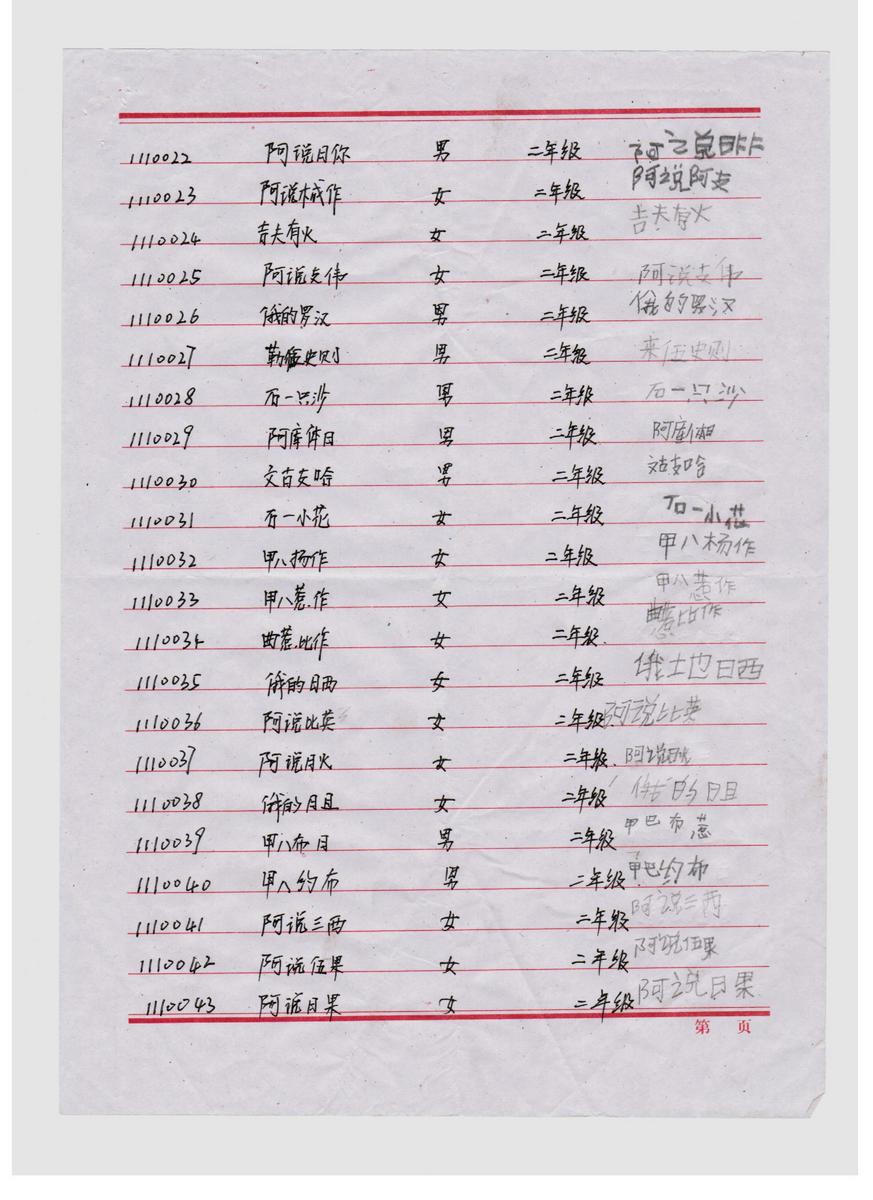 1110022 阿说日你 男 二年级 阿说日
1110023 阿说木成作 女 二年级 阿说阿支
1110024 吉夫有火 女 二年级 吉夫有火
1110025 阿说支伟 女 二年级 阿说支伟
1110026 俄的罗汉 男 二年级 俄的罗汉
1110027 勒伍史则 男 二年级 来伍史则
1110028 石一只沙 男 二年级 石一只沙
1110029 阿库体日 男 二年级 阿库
1110030 文古支哈 男 二年级
1110031 石一小花 女 二年级 石一小花
1110032 甲八扬作 女 二年级 甲八杨作
1110033 甲八惹作 女 二年级 甲八惹作
1110034 曲惹比作 女 二年级 曲惹比作
1110035 俄的日西 女 二年级 俄土也日西
1110036 阿说比英 女 二年级 阿说比英
1110037 阿说日火 女 二年级 阿说日火
1110038 俄的日且 女 二年级 俄的日且
1110039 甲八布日 男 二年级 甲巴布惹
1110040 甲八约布 男 二年级 甲巴约布
1110041 阿说三西 女 二年级 阿说三西
1110042 阿说伍果 女 二年级 阿说伍果
1110043 阿说日果 女 二年级 阿说日果
第 页